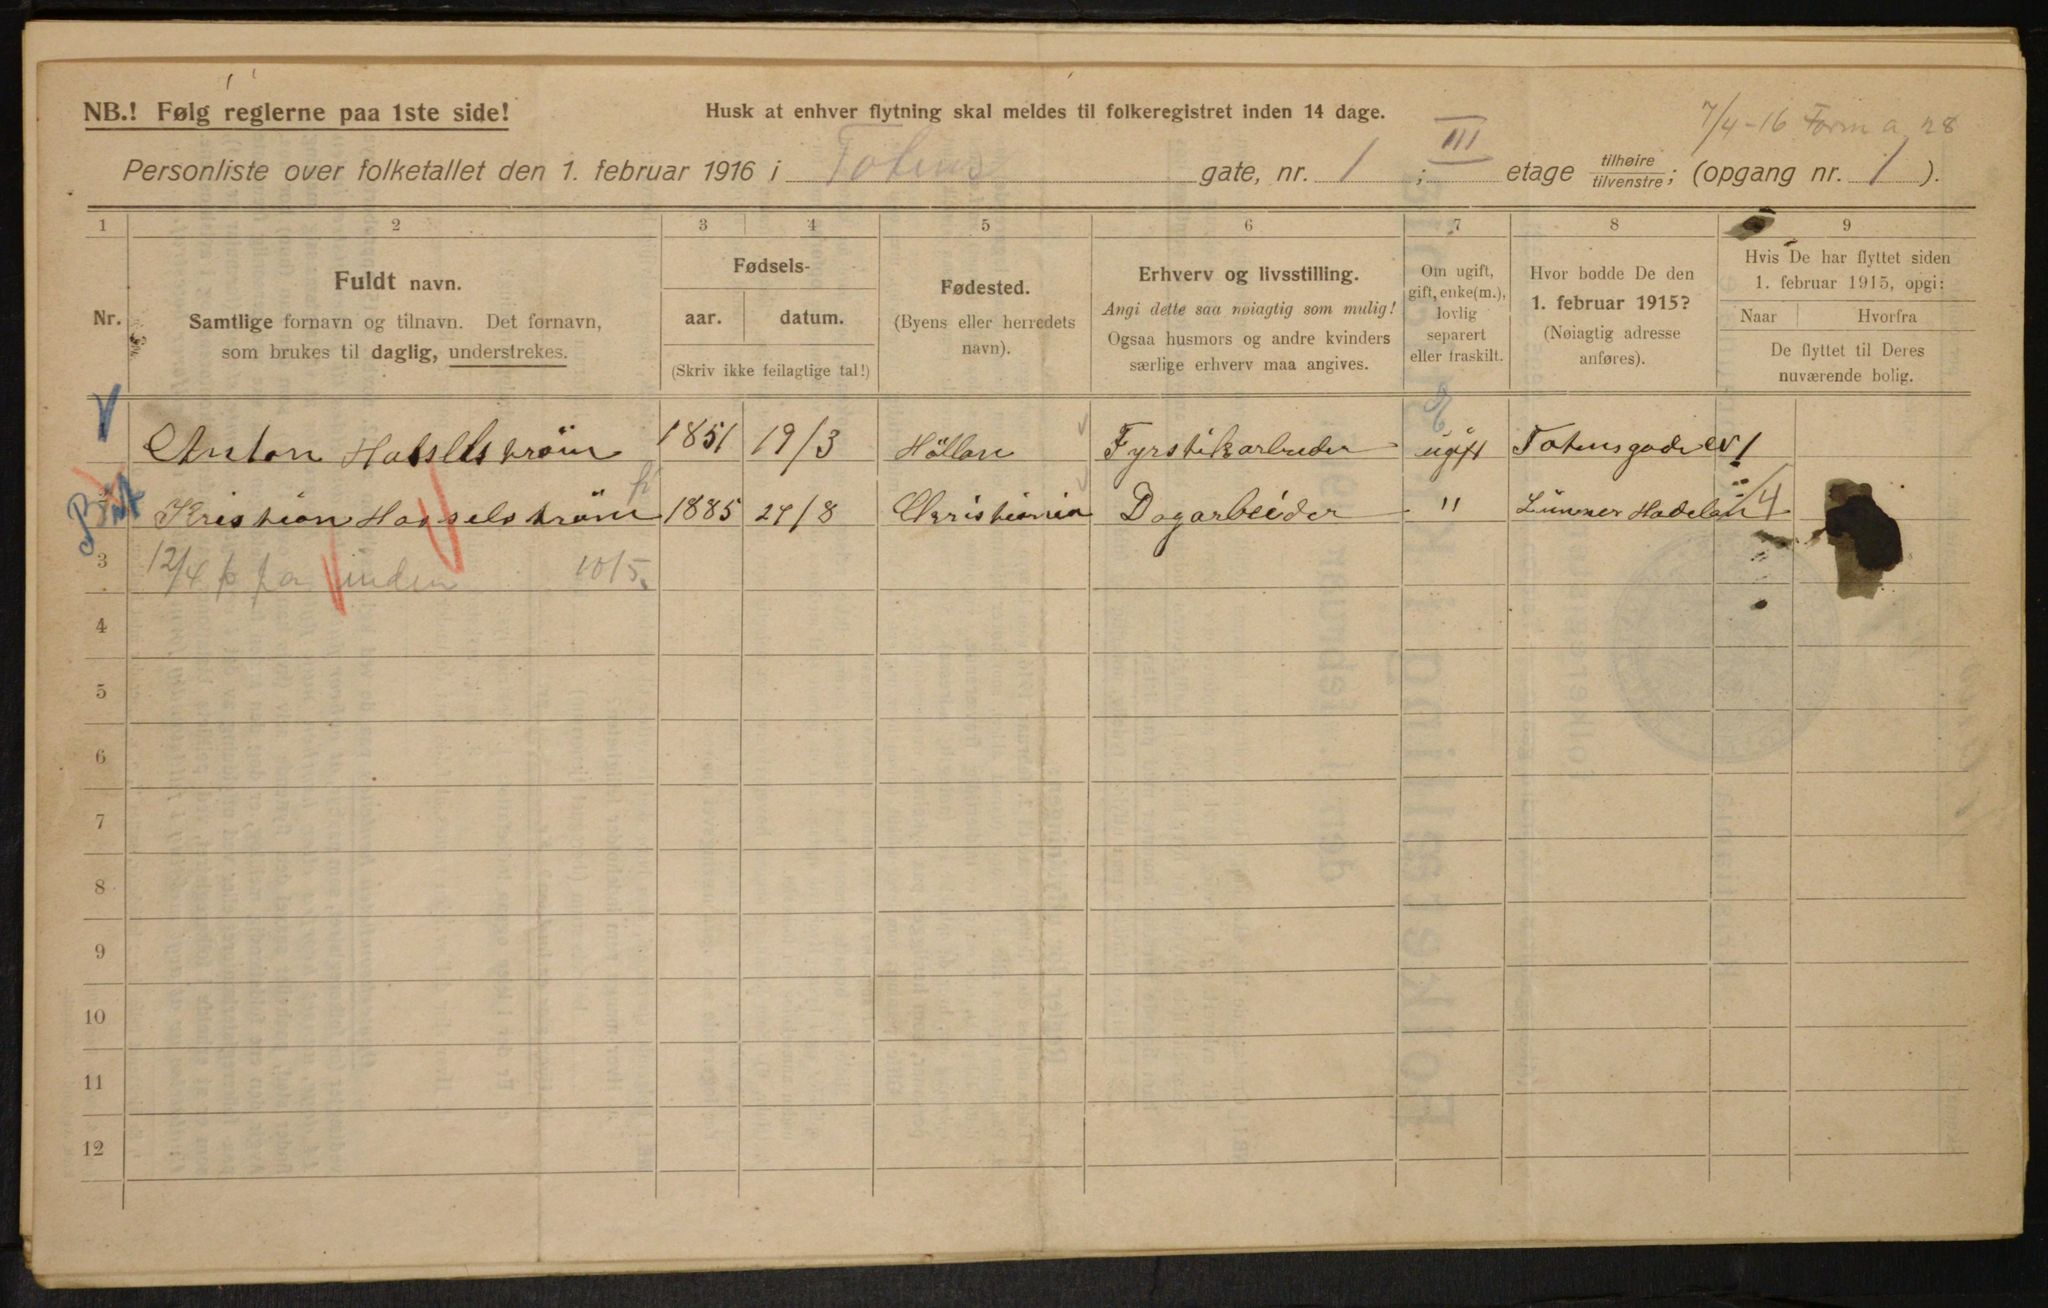 NB.! Følg reglerne paa 1ste side!
Husk at enhver flytning skal meldes til folkeregistret inden 14 dage.
7/4-16 Form a 28
Personliste over folketallet den 1. februar 1916 i Totens gate, nr. 1 ; III etage tilhøire/tilvenstre; (opgang nr. 1 ).
1 2 3 4 5 6 7 8 9
Nr.
Fuldt navn.
Samtlige fornavn og tilnavn. Det fornavn,
som brukes til daglig, understrekes.
Fødsels-
aar. datum.
(Skriv ikke feilagtige tal!)
Fødested.
(Byens eller herredets
navn).
Erhverv og livsstilling.
Angi dette saa nøiagtig som mulig!
Ogsaa husmors og andre kvinders
særlige erhverv maa angives.
Om ugift,
gift, enke(m.),
lovlig
separert
eller fraskilt.
Hvor bodde De den
1. februar 1915?
(Nøiagtig adresse
anføres).
Hvis De har flyttet siden
1. februar 1915, opgi:
Naar Hvorfra
De flyttet til Deres
nuværende bolig.
Anton Hasselström 1851 19/3 Höllan Fyrstikarbeider ugift Totensgade 1
Kristian Hasselström 1885 27/8 Christiania Dagarbeider " Lünner Hadeland
3 12/4 inden 10/5.
4
5
6
7
8
9
10
11
12